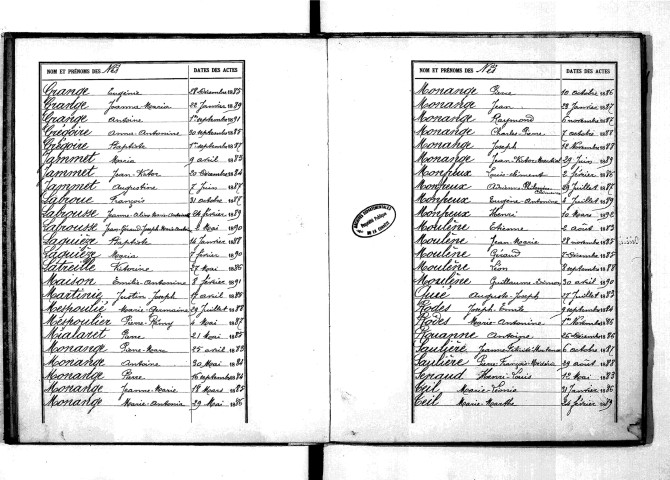 NOM ET PRÉNOMS DES Nés DATES DES ACTES
Grange Eugénie 18 Décembre 1885
Grange Jeanne-Maria 22 Janvier 1889
Grange Antoine 1er septembre 1891
Grégoire Anna-Antonine 20 septembre 1885
Grégoire Baptiste 1er septembre 1887
Jammet Maria 9 avril 1883
Jammet Jean-Victor 20 Décembre 1884
Jammet Augustine 7 Juin 1887
Labroue François 31 octobre 1887
Labrousse Jeanne-Aline-Marie-Antoinette février 1889
Labrousse Jean-Géraud-Joseph 2 Mai 1890
Laquièze Baptiste 14 Janvier 1888
Laquièze Maria 7 février 1890
Latreille Victorine 27 Mai 1886
Maison Emilie-Antonine 8 février 1891
Martinie Justin-Joseph 17 avril 1888
Mespoulié Marie-Germaine 29 Juillet 1888
Mespoulier Pierre-Rémy 4 Mai 1887
Mialaret Pierre 21 Mai 1885
Monange Pierre-Marc 25 avril 1883
Monange Antoine 30 Mai 1884
Monange Pierre 16 septembre 1884
Monange Jeanne-Marie 18 Mars 1885
Monange Marie-Antonia 29 Mai 1886
NOM ET PRÉNOMS DES Nés DATES DES ACTES
Monange Pierre 10 octobre 1886
Monange Jean 28 Janvier 1887
Monange Raymond 6 novembre 1887
Monange Charles-Pierre 7 octobre 1887
Monange Joseph 12 Novembre 1887
Monange Jean-Victor 29 Juin 1889
Monpeux Louis-Clément 2 février 1886
Monpeux 29 Juillet 1887
Monpeux Eugène-Antonine 4 Juillet 1889
Monpeux Henri 10 Mars 1890
Moulène Etienne 2 août 1883
Moulène Jean-Marie 28 novembre 1885
Moulène Géraud Décembre 1885
Moulène Léon 3 septembre 1888
Moulène Guillaume 30 avril 1890
Auguste-Joseph 17 Juillet 1883
Rodes Joseph-Emile 9 septembre 1884
Rodes Marie-Antonine 1er Novembre 1886
Rouanne Antoine 25 Décembre 1886
Saulière Jeanne 6 octobre 1891
Saulière Pierre-François 29 août 1888
Renaud Henri-Louis 12 Mai 1883
Teil Marie-Léonie 31 Janvier 1886
Teil Marie-Marthe 24 février 1889
ARCHIVES DÉPARTEMENTALES
DE LA CORRÈZE